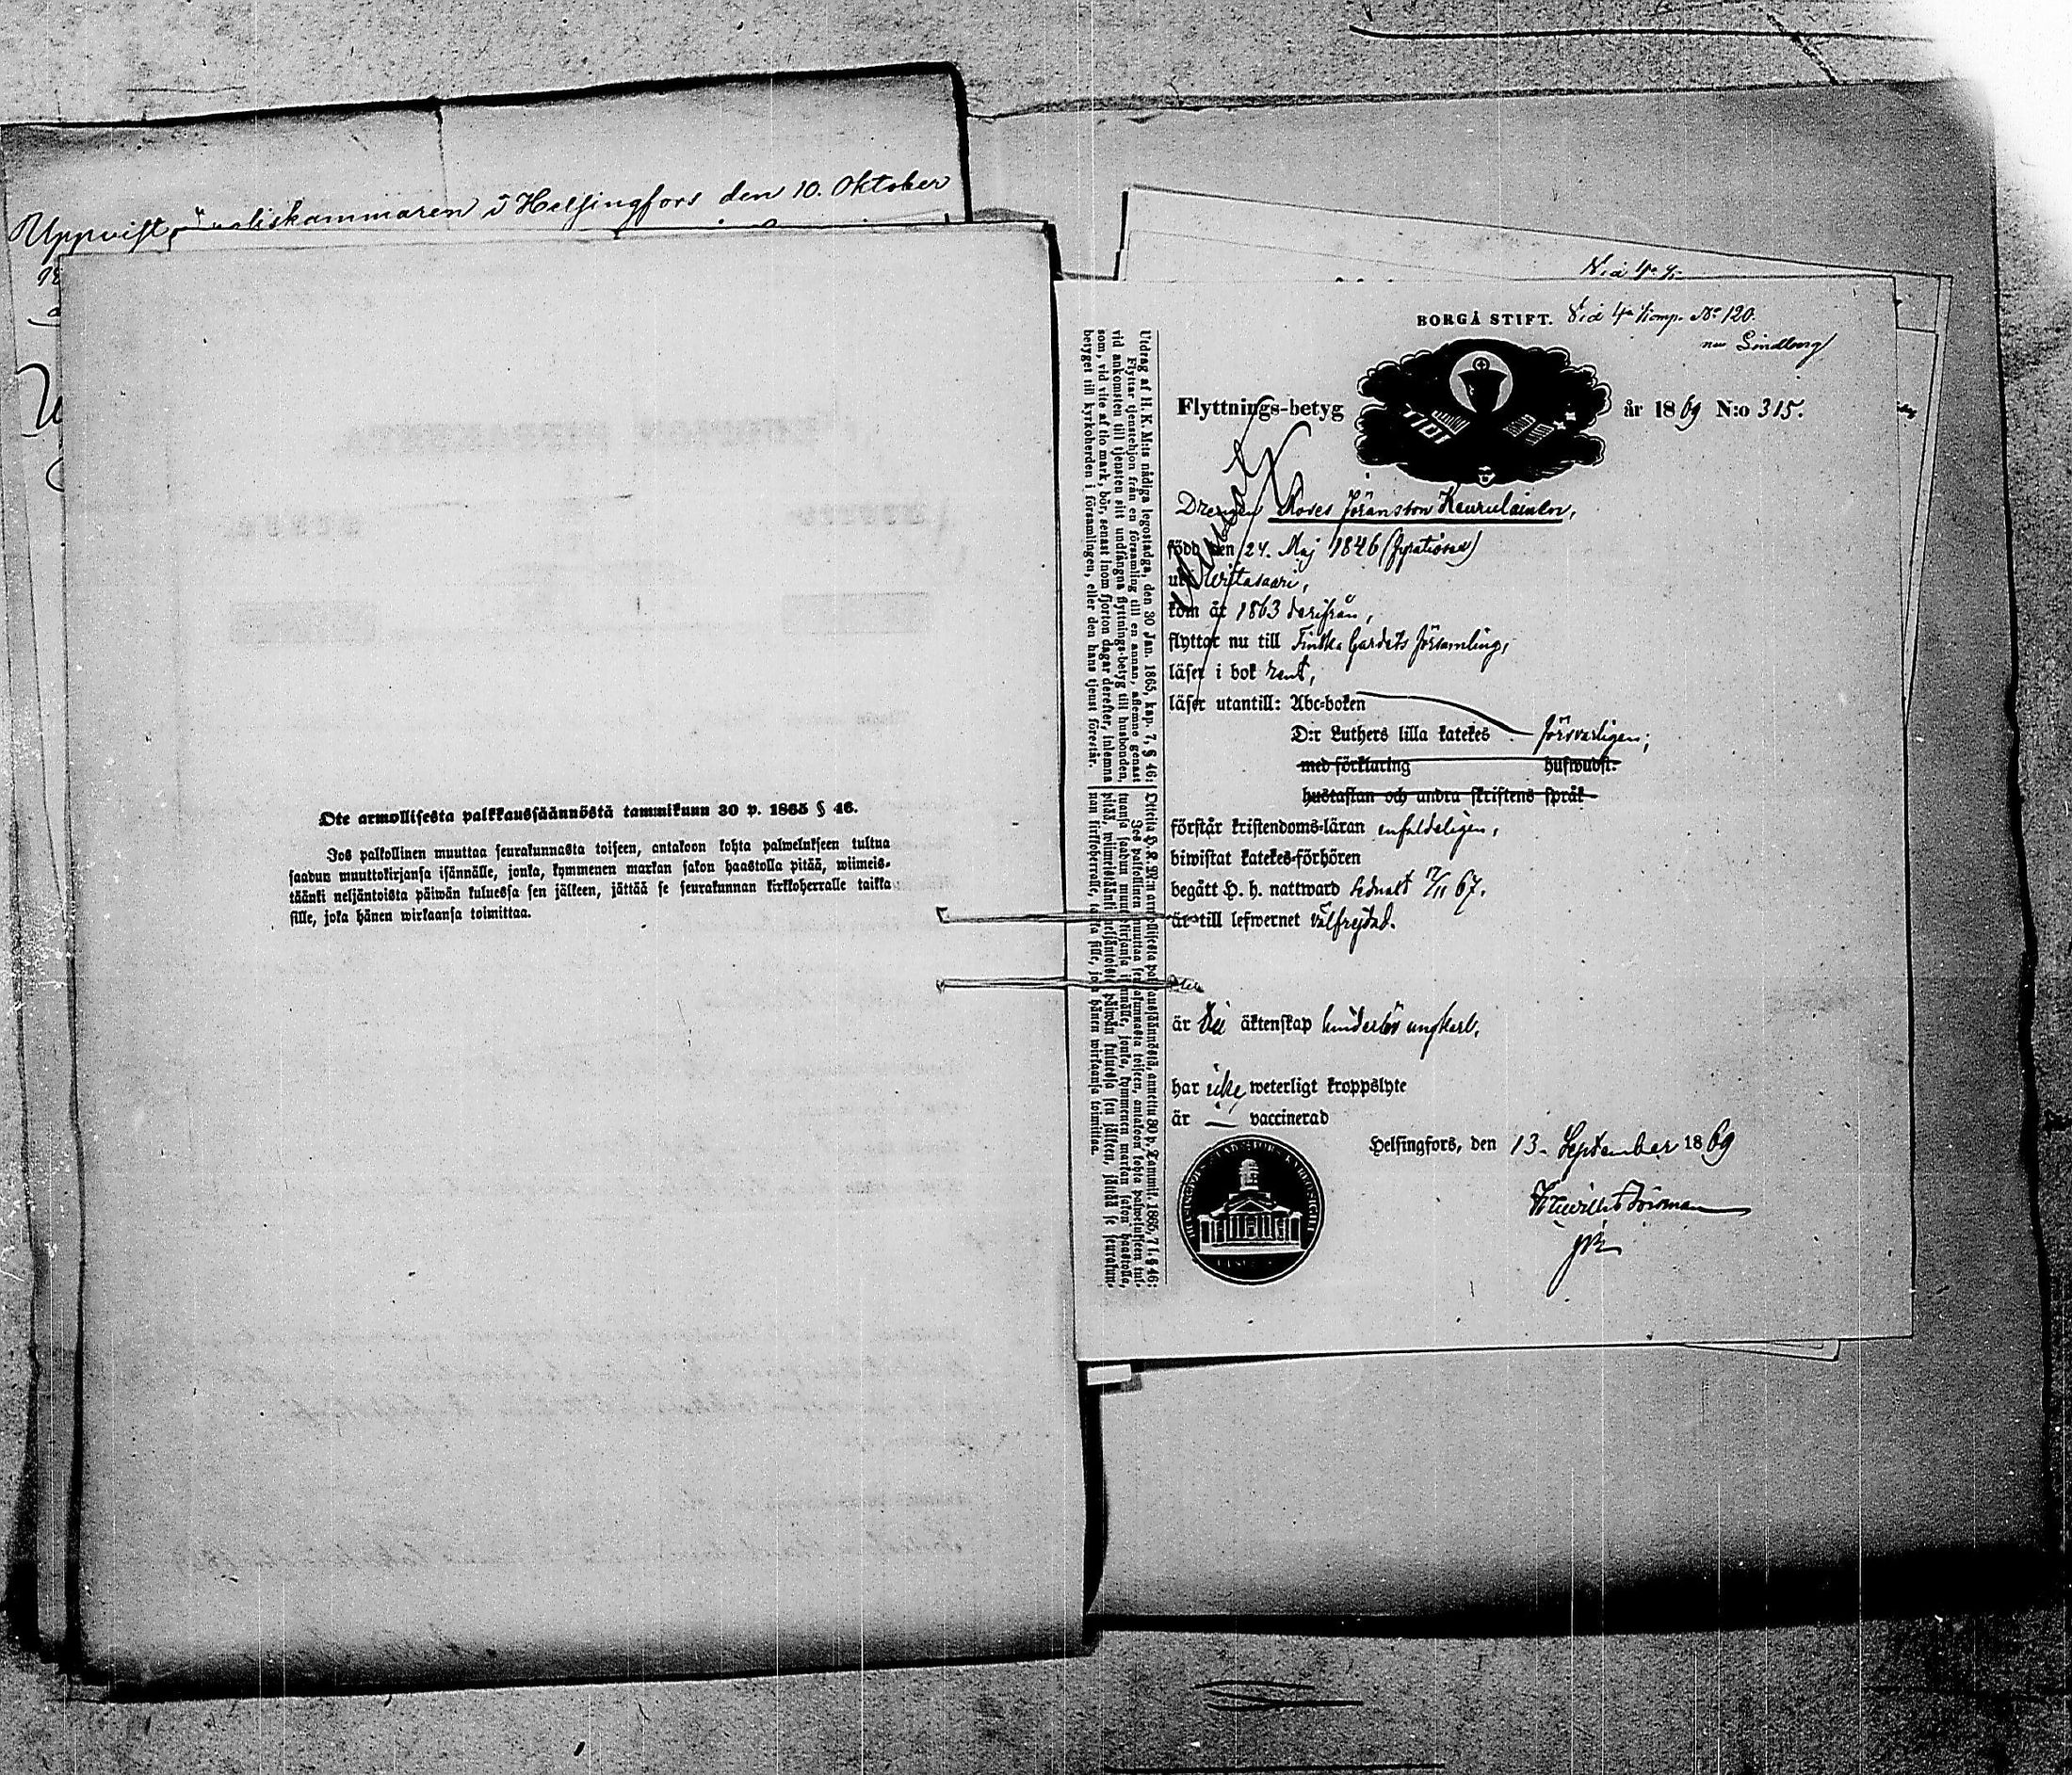 Uppvist i poliskammaren i Helsingfors den 10. Oktober
Ote armollisesta palkkaussäännöstä tammikunn 30 p. 1865 § 46.
Jos palkollinen muuttaa seurakunnasta toiseen, antakoon kohta palwelukseen tultua
saadun muuttokirjansa isännälle, jonka, kymmenen markan sakon haastolla pitää, wiimeis-
täänki neljäntoista päiwän kuluessa sen jälkeen, jättää se seurakunnan kirkkoherralle taikka
sille, joka hänen wirkaansa toimittaa.
BORGÅ STIFT. Vid 4de Komp. No 120.
nu Lindberg
Flyttnings-betyg år 1869 N:o 315.
1701
Drengen Moses Göransson Keurulainen,
född den 24. Maj 1846
uti Witasaari,
kom år 1863 derifrån,
flyttar nu till Finska Gardets församling,
läser i bok rent,
läser utantill: Abc-boken
D:r Luthers lilla katekes försvarligen;
med förklaring hufwudst.
hustaflan och andra skriftens språk
förstår kristendoms-läran enfaldeligen,
biwistat katekes-förhören
begått H. h. nattward sednast 17/11 67.
är till lefwernet välfrejdad.
är äktenskap hinderlös ungkarl.
har icke weterligt kroppslyte
är — vaccinerad
Helsingfors, den 13. September 1869
Utdrag af H. K. M:ts nådiga legostadga, den 30 Jan. 1865, kap. 7, § 46:
Flyttar tjenstehjon från en församling till en annan, aflemne genast
vid ankomsten till tjensten sitt undfångna flyttnings-betyg till husbonden,
som, vid vite af tio mark, bör, senast inom fjorton dagar derefter, inlemna
betyget till kyrkoherden i församlingen, eller den hans tjenst förestår.
Otteita H. K. M:n armollisesta palkkaussäännöstä, annettu 30 p. Tammik. 1865, 7 l. § 46:
Jos palkollinen muuttaa seurakunnasta toiseen, antakoon kohta palwelukseen tul-
tuansa saadun muuttokirjansa isännälle, jonka, kymmenen markan sakon haastolla,
pitää, wiimeistäänki neljäntoista päiwän kuluessa sen jälkeen, jättää se seurakun-
nan kirkkoherralle, taikka sille, joka hänen wirkaansa toimittaa.